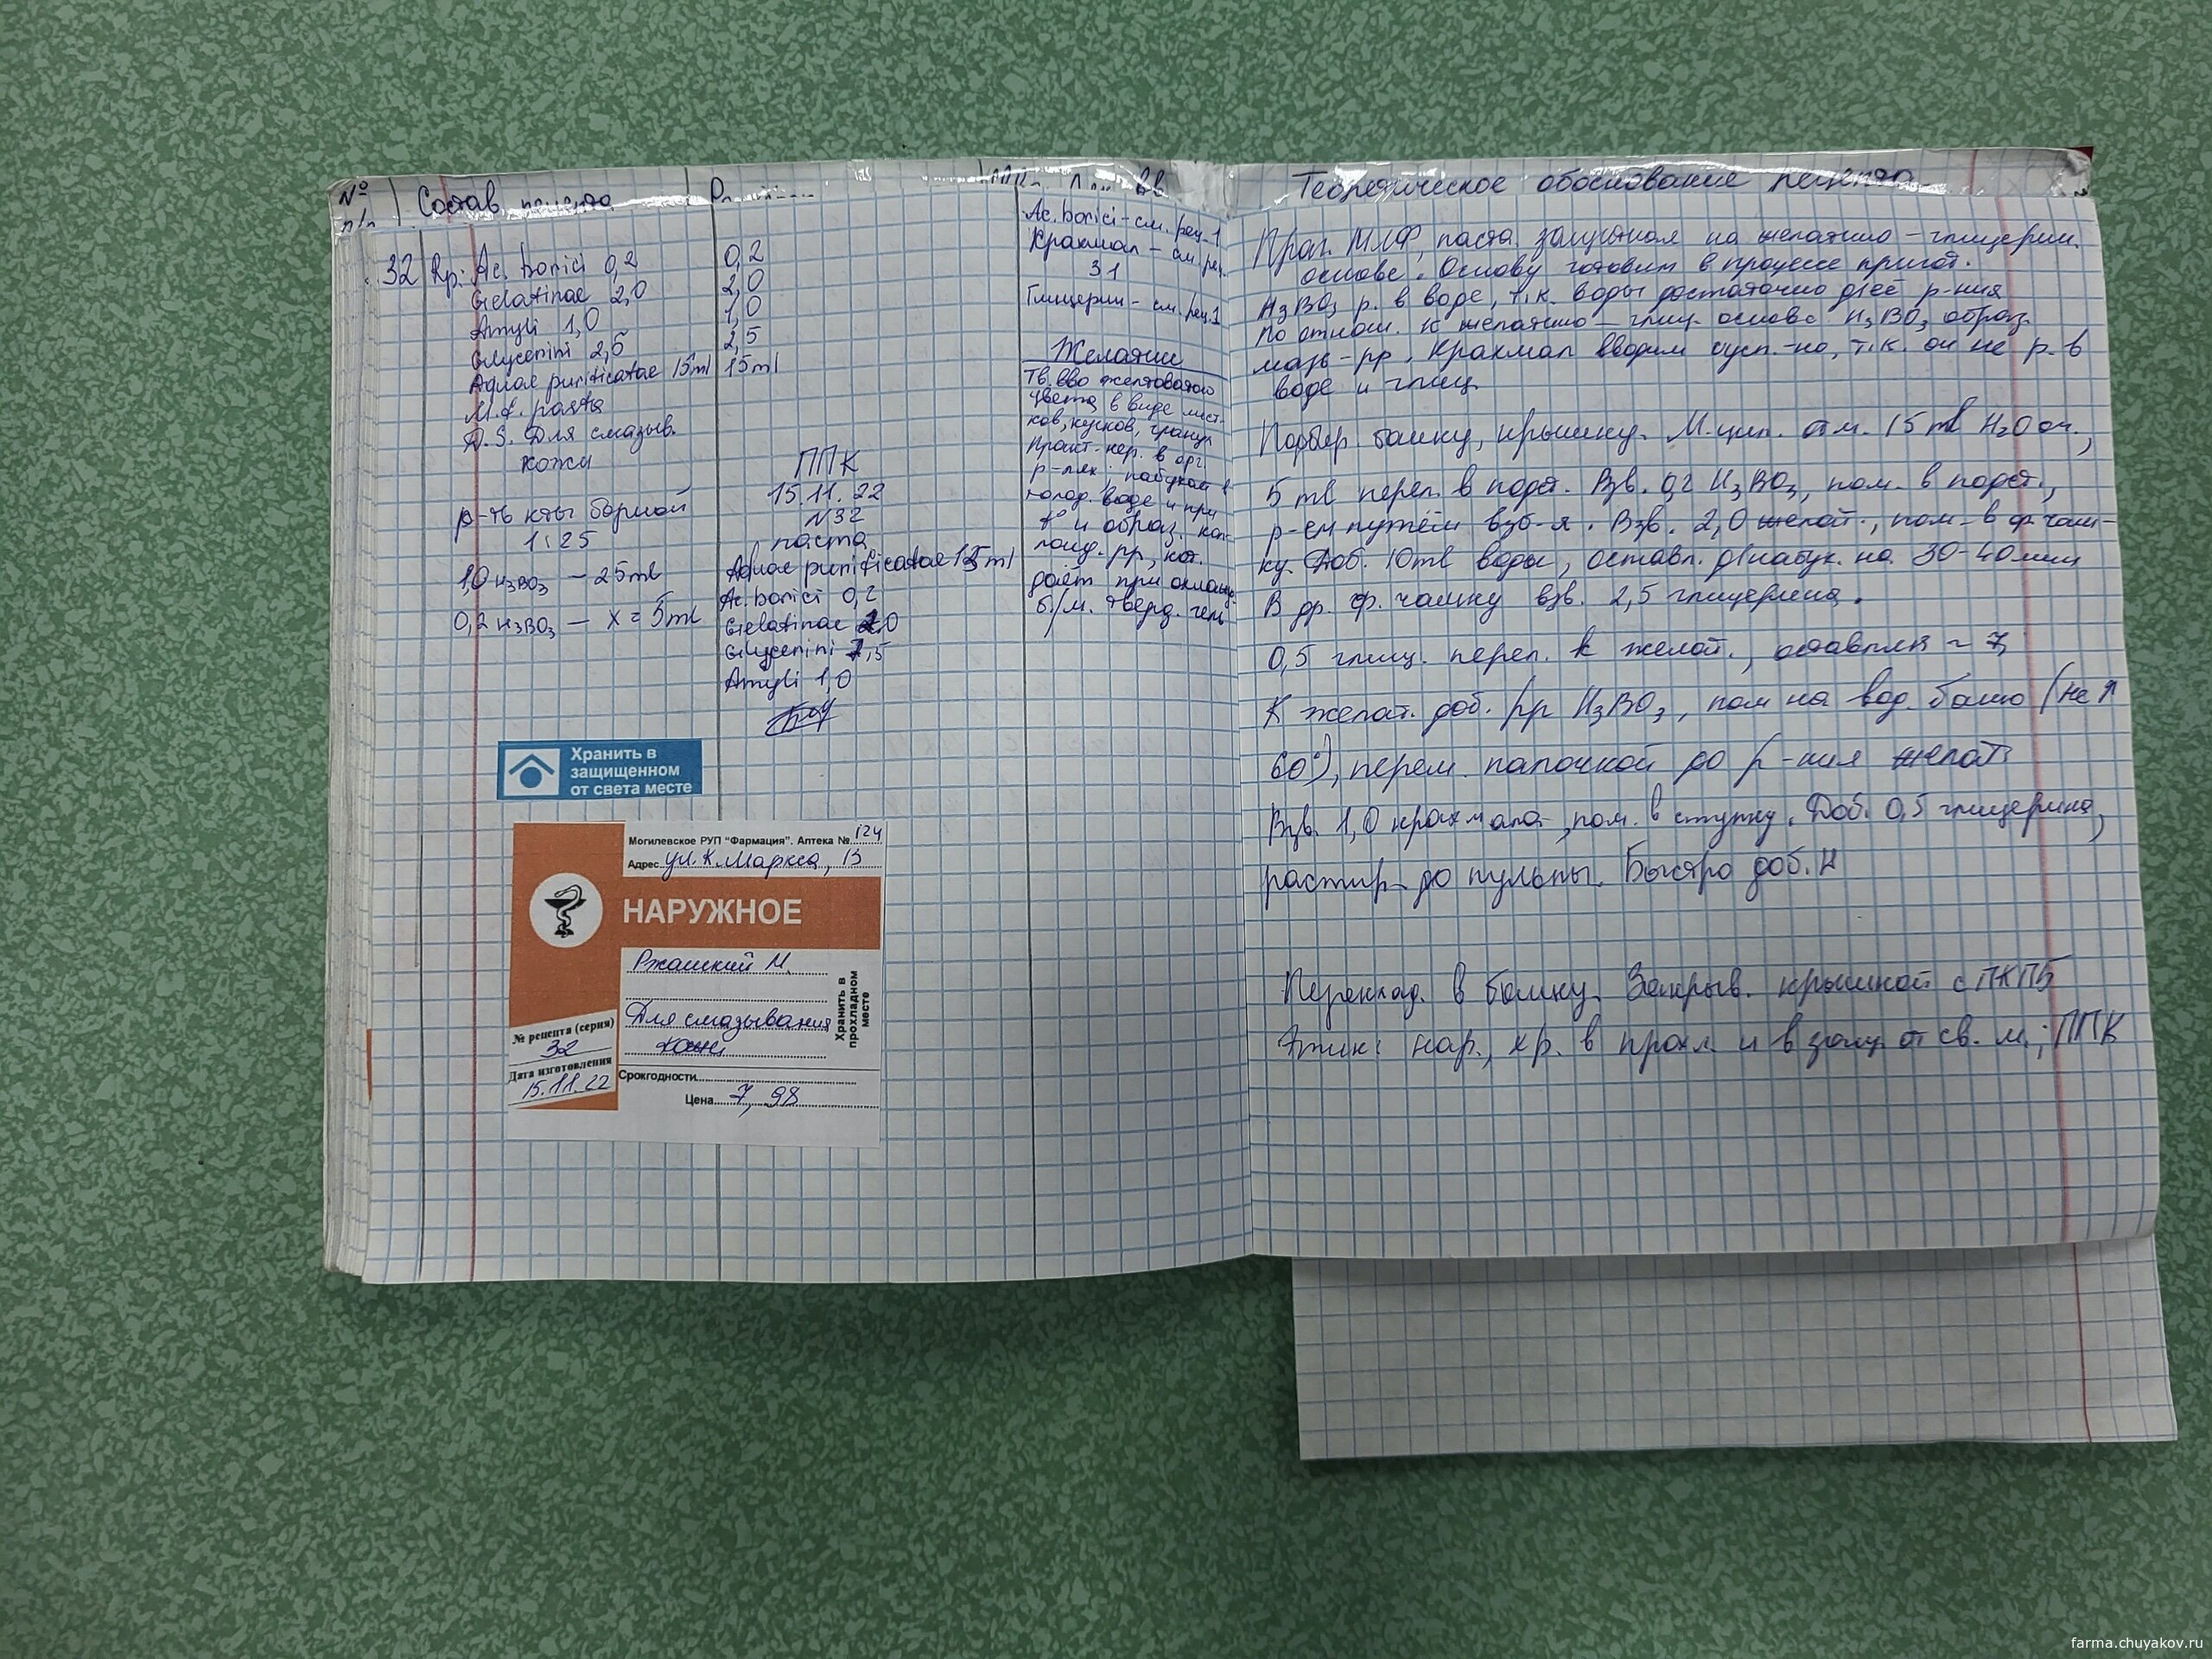 № п/п
Состав рецепта
32 Rp: Ac. borici 0,2
Gelatinae 2,0
Amyli 1,0
Glycerini 2,5
Aquae purificatae 15ml
M.f. pasta
D.S. Для смазыв.
кожи
р-ть к-ты борной
1:25
1,0 H₃BO₃ – 25ml
0,2 H₃BO₃ – x = 5ml
0,2
2,0
1,0
2,5
15ml
ППК
15.11.22
N32
паста
Aquae purificatae 15ml
Ac. borici 0,2
Gelatinae 2,0
Glycerini 2,5
Amyli 1,0
Ac. borici – см. рец. 1
Крахмал – см. рец.
31
Глицерин – см. рец. 1
Желатин
Тв. в-во желтоватого
цвета в виде лист-
ков, кусков, гранул
Практ. нер. в орг.
р-лях; набухает в
холод. воде и при
t° и образ. кол-
лоид. рр, кот.
даёт при охлажд.
б/м. тверд. гель
Хранить в
защищенном
от света месте
Могилевское РУП "Фармация". Аптека № 124
Адрес ул. К. Маркса, 13
НАРУЖНОЕ
Для смазывания
кожи
Хранить в
прохладном
месте
№ рецепта (серия)
32
Дата изготовления
15.11.22
Срок годности
Цена 7,98
Теоретическое обоснование рецепта
МЛФ, паста, на желатино-глицерин.
основе. Основу готовим в процессе пригот.
H₃BO₃ р. в воде, т.к. воды достаточно д/её р-ния
По отнош. к желатино-глиц. основе H₃BO₃ образ.
мазь-рр. Крахмал вводим сусп.-но, т.к. он не р. в
воде и глиц.
Подбир. банку, крышку. М. цил. отм. 15 ml H₂O оч.,
5 ml перел. в подст. Взв. 0,2 H₃BO₃, пом. в подст.,
р-ем путём взб-я. Взв. 2,0 желат., пом. в ф. чаш-
ку. Доб. 10ml воды, оставл. д/набух. на 30-40 мин
В др. ф. чашку взв. 2,5 глицерина.
0,5 глиц. перел. к желат., оставляя ~ 7,
К желат. доб. рр H₃BO₃, пом на вод. баню (не ↑
60°), перем. палочкой до р-ния желат.
Взв. 1,0 крахмала, пом. в ступку. Доб. 0,5 глицерина,
растир. до пульпы. Быстро доб. н
Переклад. в банку. Закрыв. крышкой с ПКПБ
Этик: нар., хр. в прохл. и в защ. от св. м.; ППК
farma.chuyakov.ru